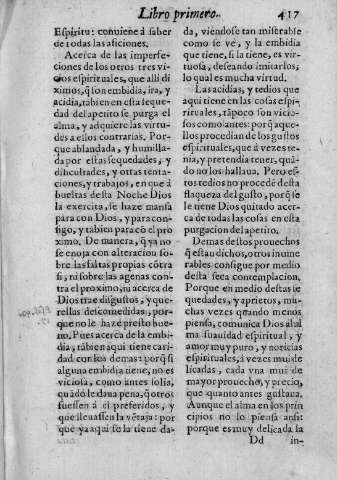 Libro primero. 417
Espiritu: conuiene â saber
de todas las aficiones.
Acerca de las imperfe-
ciones de los otros tres vi-
cios espirituales, que alli di
ximos, q̃ son embidia, ira, y
acidia, tãbien en esta seque-
dad del apetito se purga el
alma, y adquiere las virtu-
des a ellos contrarias. Por
que ablandada, y humilla-
da por estas sequedades, y
dificultades, y otras tenta-
ciones, y trabajos, en que â
bueltas desta Noche Dios
la exercita, se haze mansa
para con Dios, y para con-
sigo, y tãbien para cõ el pro
ximo. De manera, q̃ ya no
se enoja con alteracion so-
bre las faltas propias cõtra
si, ni sobre las agenas con-
tra el proximo, ni acerca de
Dios trae disgustos, y que-
rellas descomedidas, por-
que no le haze presto bue-
no. Pues acerca de la embi-
dia, tãbien aqui tiene cari-
dad con los demas: porq̃ si
alguna embidia tiene, no es
viciosa, como antes solia,
quãdo le daua pena, q̃ otros
fuessen â el preferidos, y
que lleuassen la vẽtaja: por
que ya aqui se la tiene da-
da, viendose tan miserable
como se vé, y la embidia
que tiene, si la tiene, es vir-
tuosa, deseando imitarlos,
lo qual es mucha virtud.
Las acidias, y tedios que
aqui tiene en las cosas espi-
rituales, tãpoco son vicio-
sos como antes: porq̃ aque-
llos procedian de los gustos
espirituales, que â vezes te-
nia, y pretendia tener, quã-
do no los hallaua. Pero es-
tos tedios no procedẽ desta
flaqueza del gusto, porq̃ se
le tiene Dios quitado acer-
ca de todas las cosas en esta
purgacion del apetito.
Demas destos prouechos
q̃ estàn dichos, otros inume
rables consigue por medio
desta seca contemplacion.
Porque en medio destas se
quedades, y aprietos, mu-
chas vezes quando menos
piensa, comunica Dios al al
ma suauidad espiritual, y
amor muy puro, y noticias
espirituales, á vezes mui de
licadas, cada vna mui de
mayor prouecho, y precio,
que quanto antes gustaua.
Aunque el alma en los prin
cipios no lo piensa ansi:
porque es muy delicada la
Dd in-